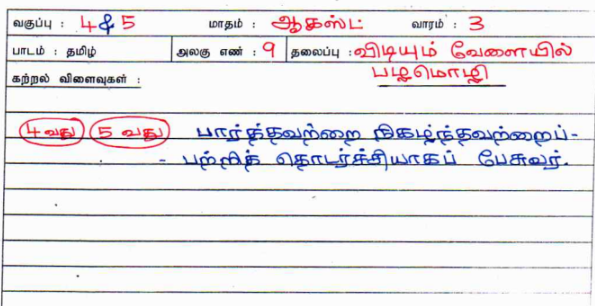 வகுப்பு : 4 & 5 மாதம் : ஆகஸ்ட் வாரம் : 3
பாடம் : தமிழ் அலகு எண் : 9 தலைப்பு : விடியும் வேளையில்
கற்றல் விளைவுகள் : பழமொழி
4வது 5 வது பார்த்தவற்றை நிகழ்ந்தவற்றைப்-
- பற்றித் தொடர்ச்சியாகப் பேசுவர்.